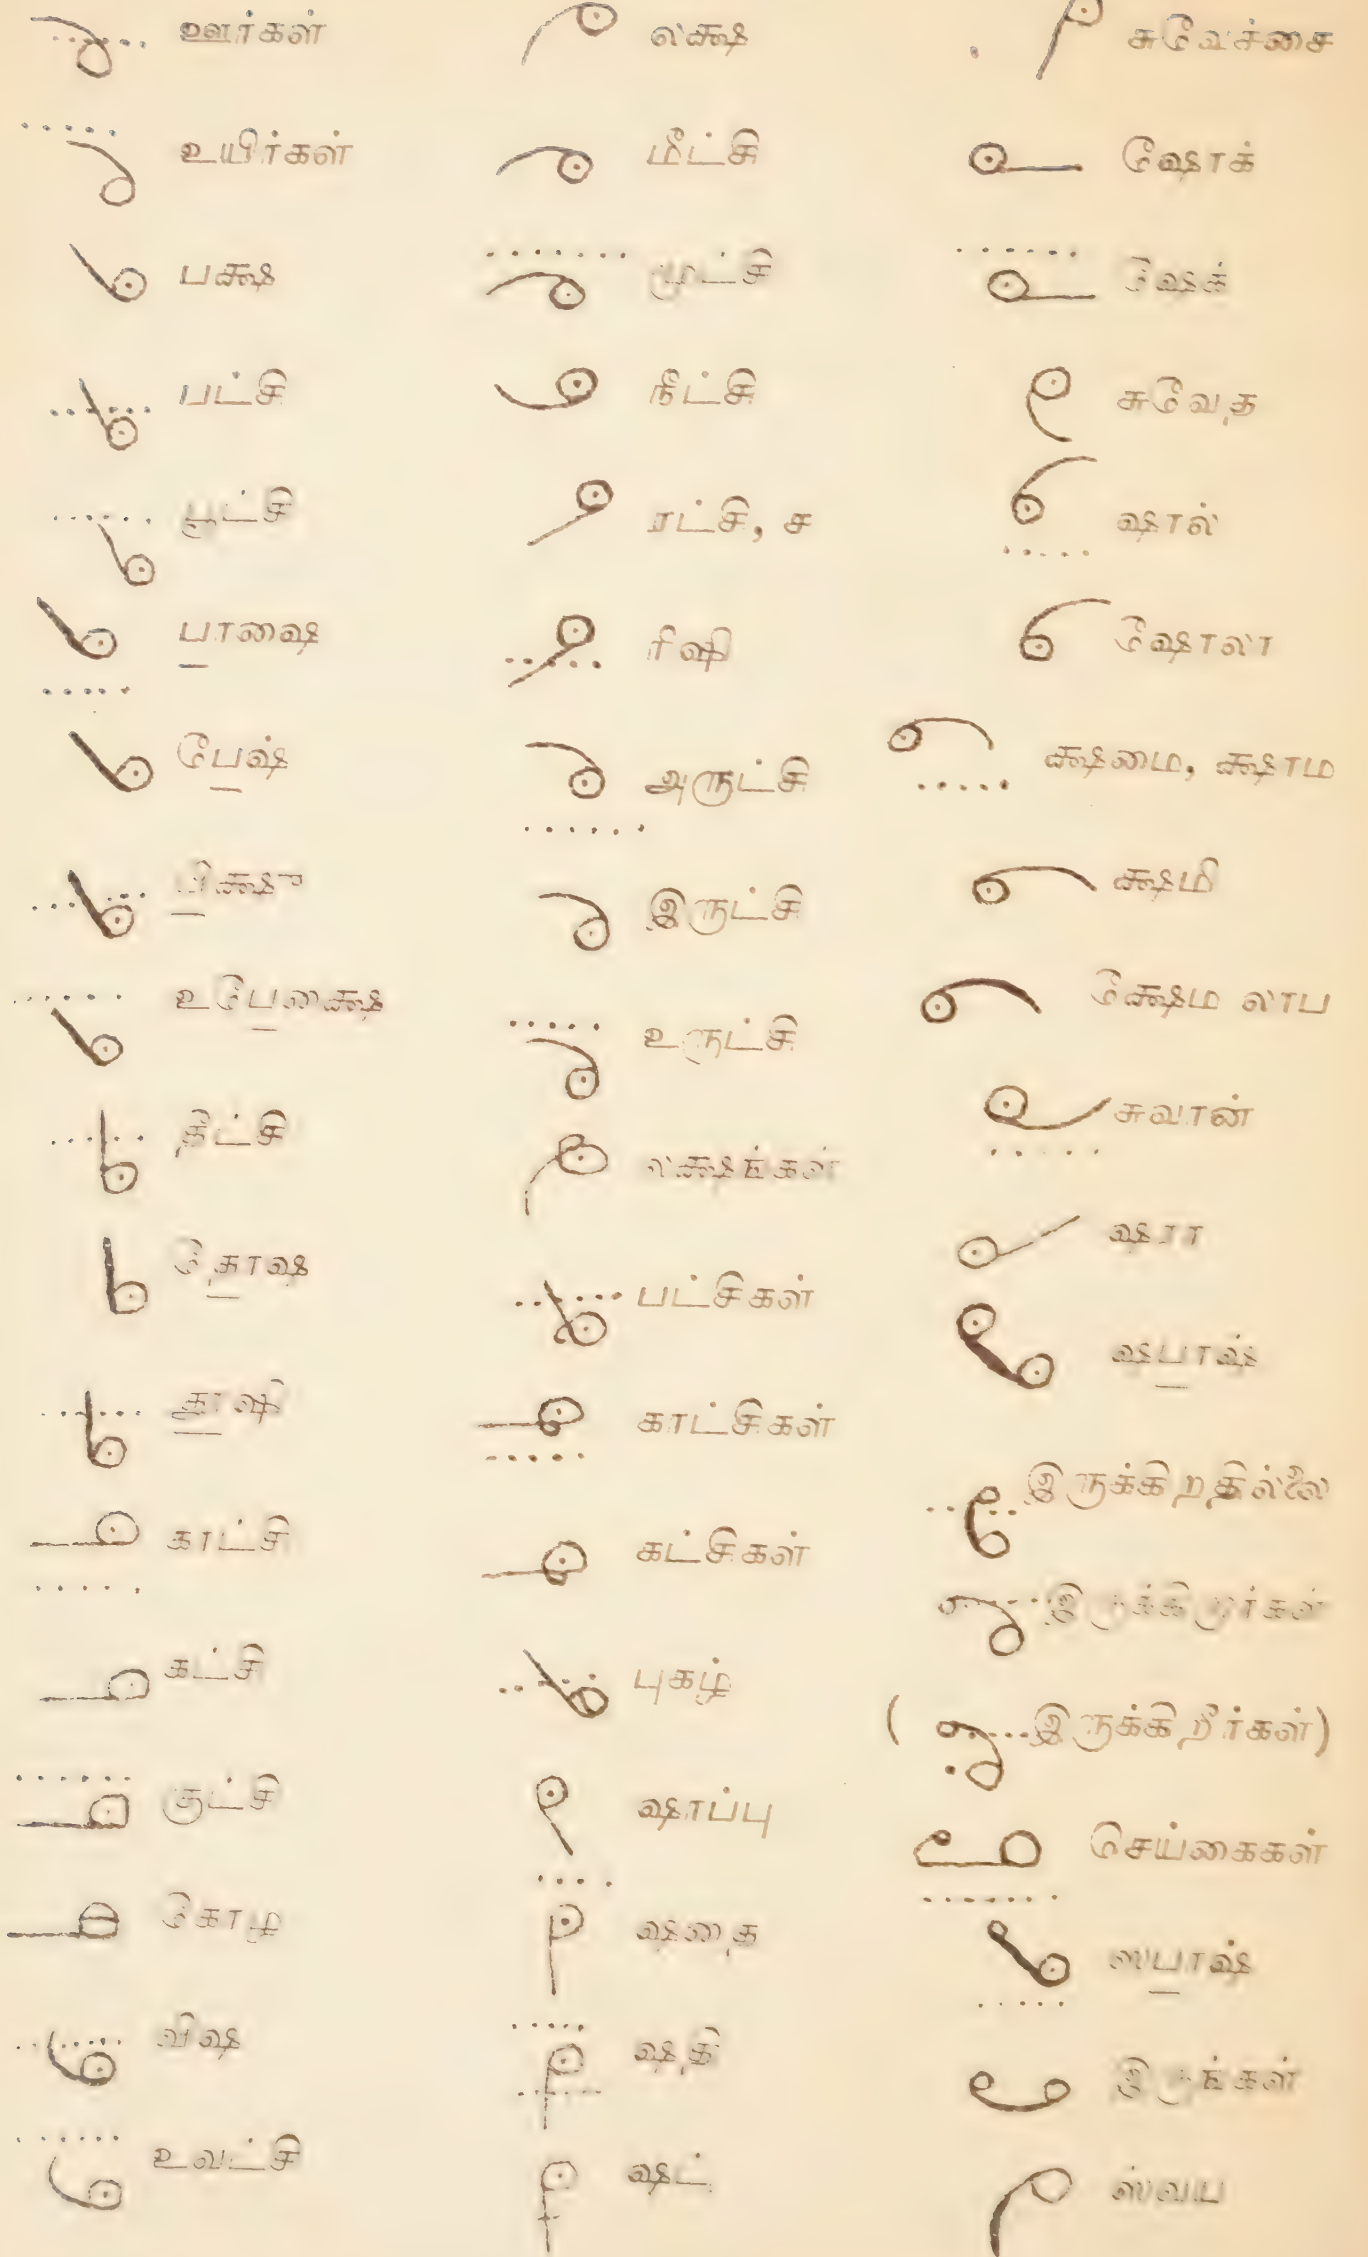 ஊர்கள்
உயிர்கள்
பக்ஷ
பட்சி
பூட்சி
பாஷை
பேஷ்
பிக்ஷு
உபேக்ஷை
திட்சி
தோஷ
தாஷி
காட்சி
கட்சி
குட்சி
கோழ
விஷ
உவட்சி
லக்ஷ
மீட்சி
முட்சி
நீட்சி
ரட்சி, ச
ரிஷி
அருட்சி
இருட்சி
உருட்சி
லக்ஷங்கள்
பட்சிகள்
காட்சிகள்
கட்சிகள்
புகழ்
ஷாப்பு
ஷதை
ஷதி
ஷட்
சுவேச்சை
ஷோக்
ஷெக்
சுவேத
ஷால்
ஷோலா
க்ஷமை, க்ஷாம
க்ஷமி
க்ஷேம லாப
சுவான்
ஷரா
ஷபாஷ்
இருக்கிறதில்லை
இருக்கிறார்கள்
( இருக்கிறீர்கள்)
செய்கைகள்
ஸபாஷ்
இருங்கள்
ஸ்வய